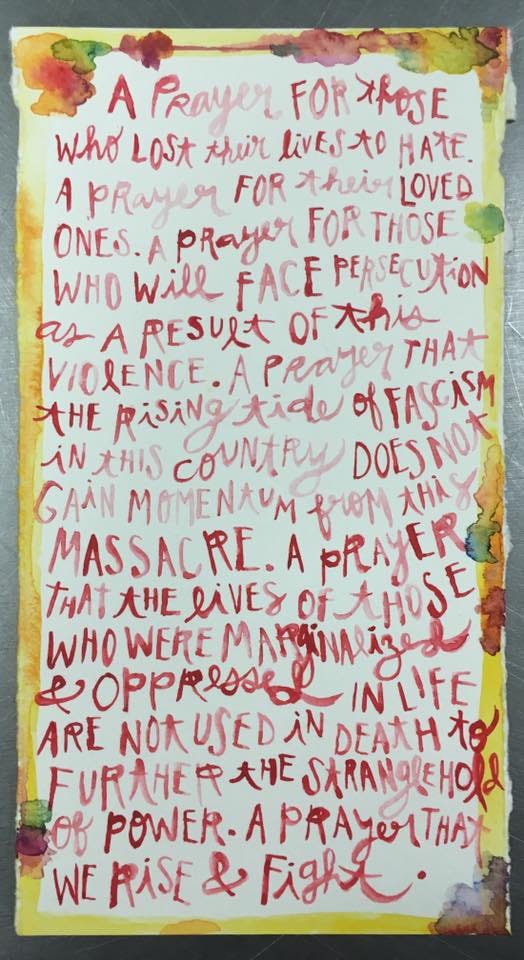 A PRayer FOR those
who LOSt their liVES tO HATE.
A pRayer FOR their LOVED
ONES. A pRayer FOR THOSE
WHO Will FACE PERSECUTiON
as A RESUlt OF this
VIOlENCE. A PRayer THAt
tHE RiSiNg tide of FASCiSM
iN tHiS COUNtRy DOES NOt
GAiN MOMENtUM from tHiS
MASSACRE. A PRAyER
tHAT tHE liVES OF tHOSE
WHO WERE MARgiNAlized
& OPPRessed IN LIFE
ARE NOt USED iN DEAtH to
FURtHER tHE StRANgleHOld
of POWER. A PRAyer THAt
WE RiSE & Fight.